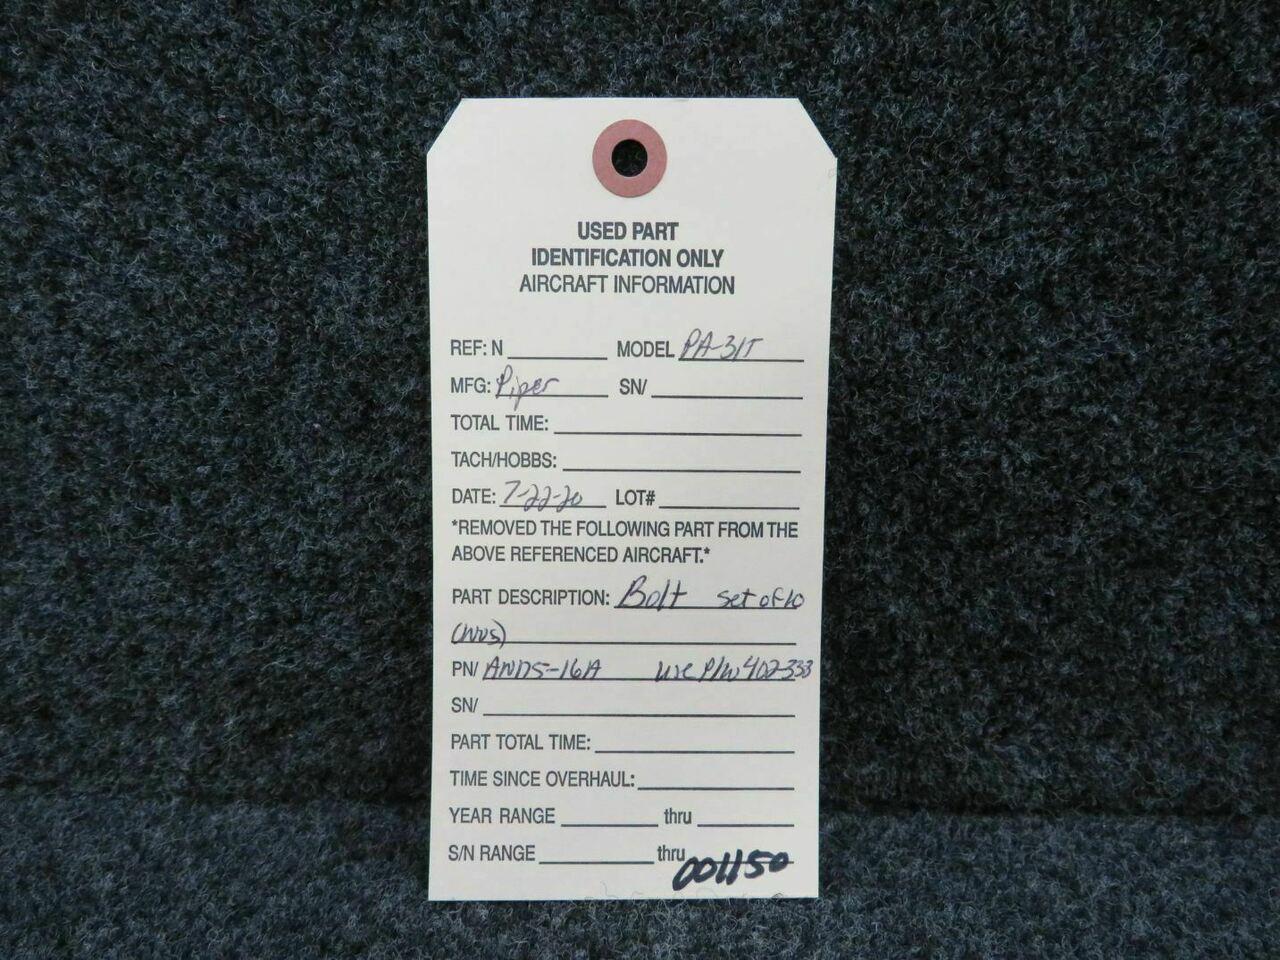 USED PART
IDENTIFICATION ONLY
AIRCRAFT INFORMATION
REF: N MODEL PA-31T
MFG: Piper SN/
TOTAL TIME:
TACH/HOBBS:
DATE: 7-22-20 LOT#
*REMOVED THE FOLLOWING PART FROM THE
ABOVE REFERENCED AIRCRAFT.*
PART DESCRIPTION: Bolt set of 10
PN/ use P/N 402-333
SN/
PART TOTAL TIME:
TIME SINCE OVERHAUL:
YEAR RANGE thru
S/N RANGE thru 001150